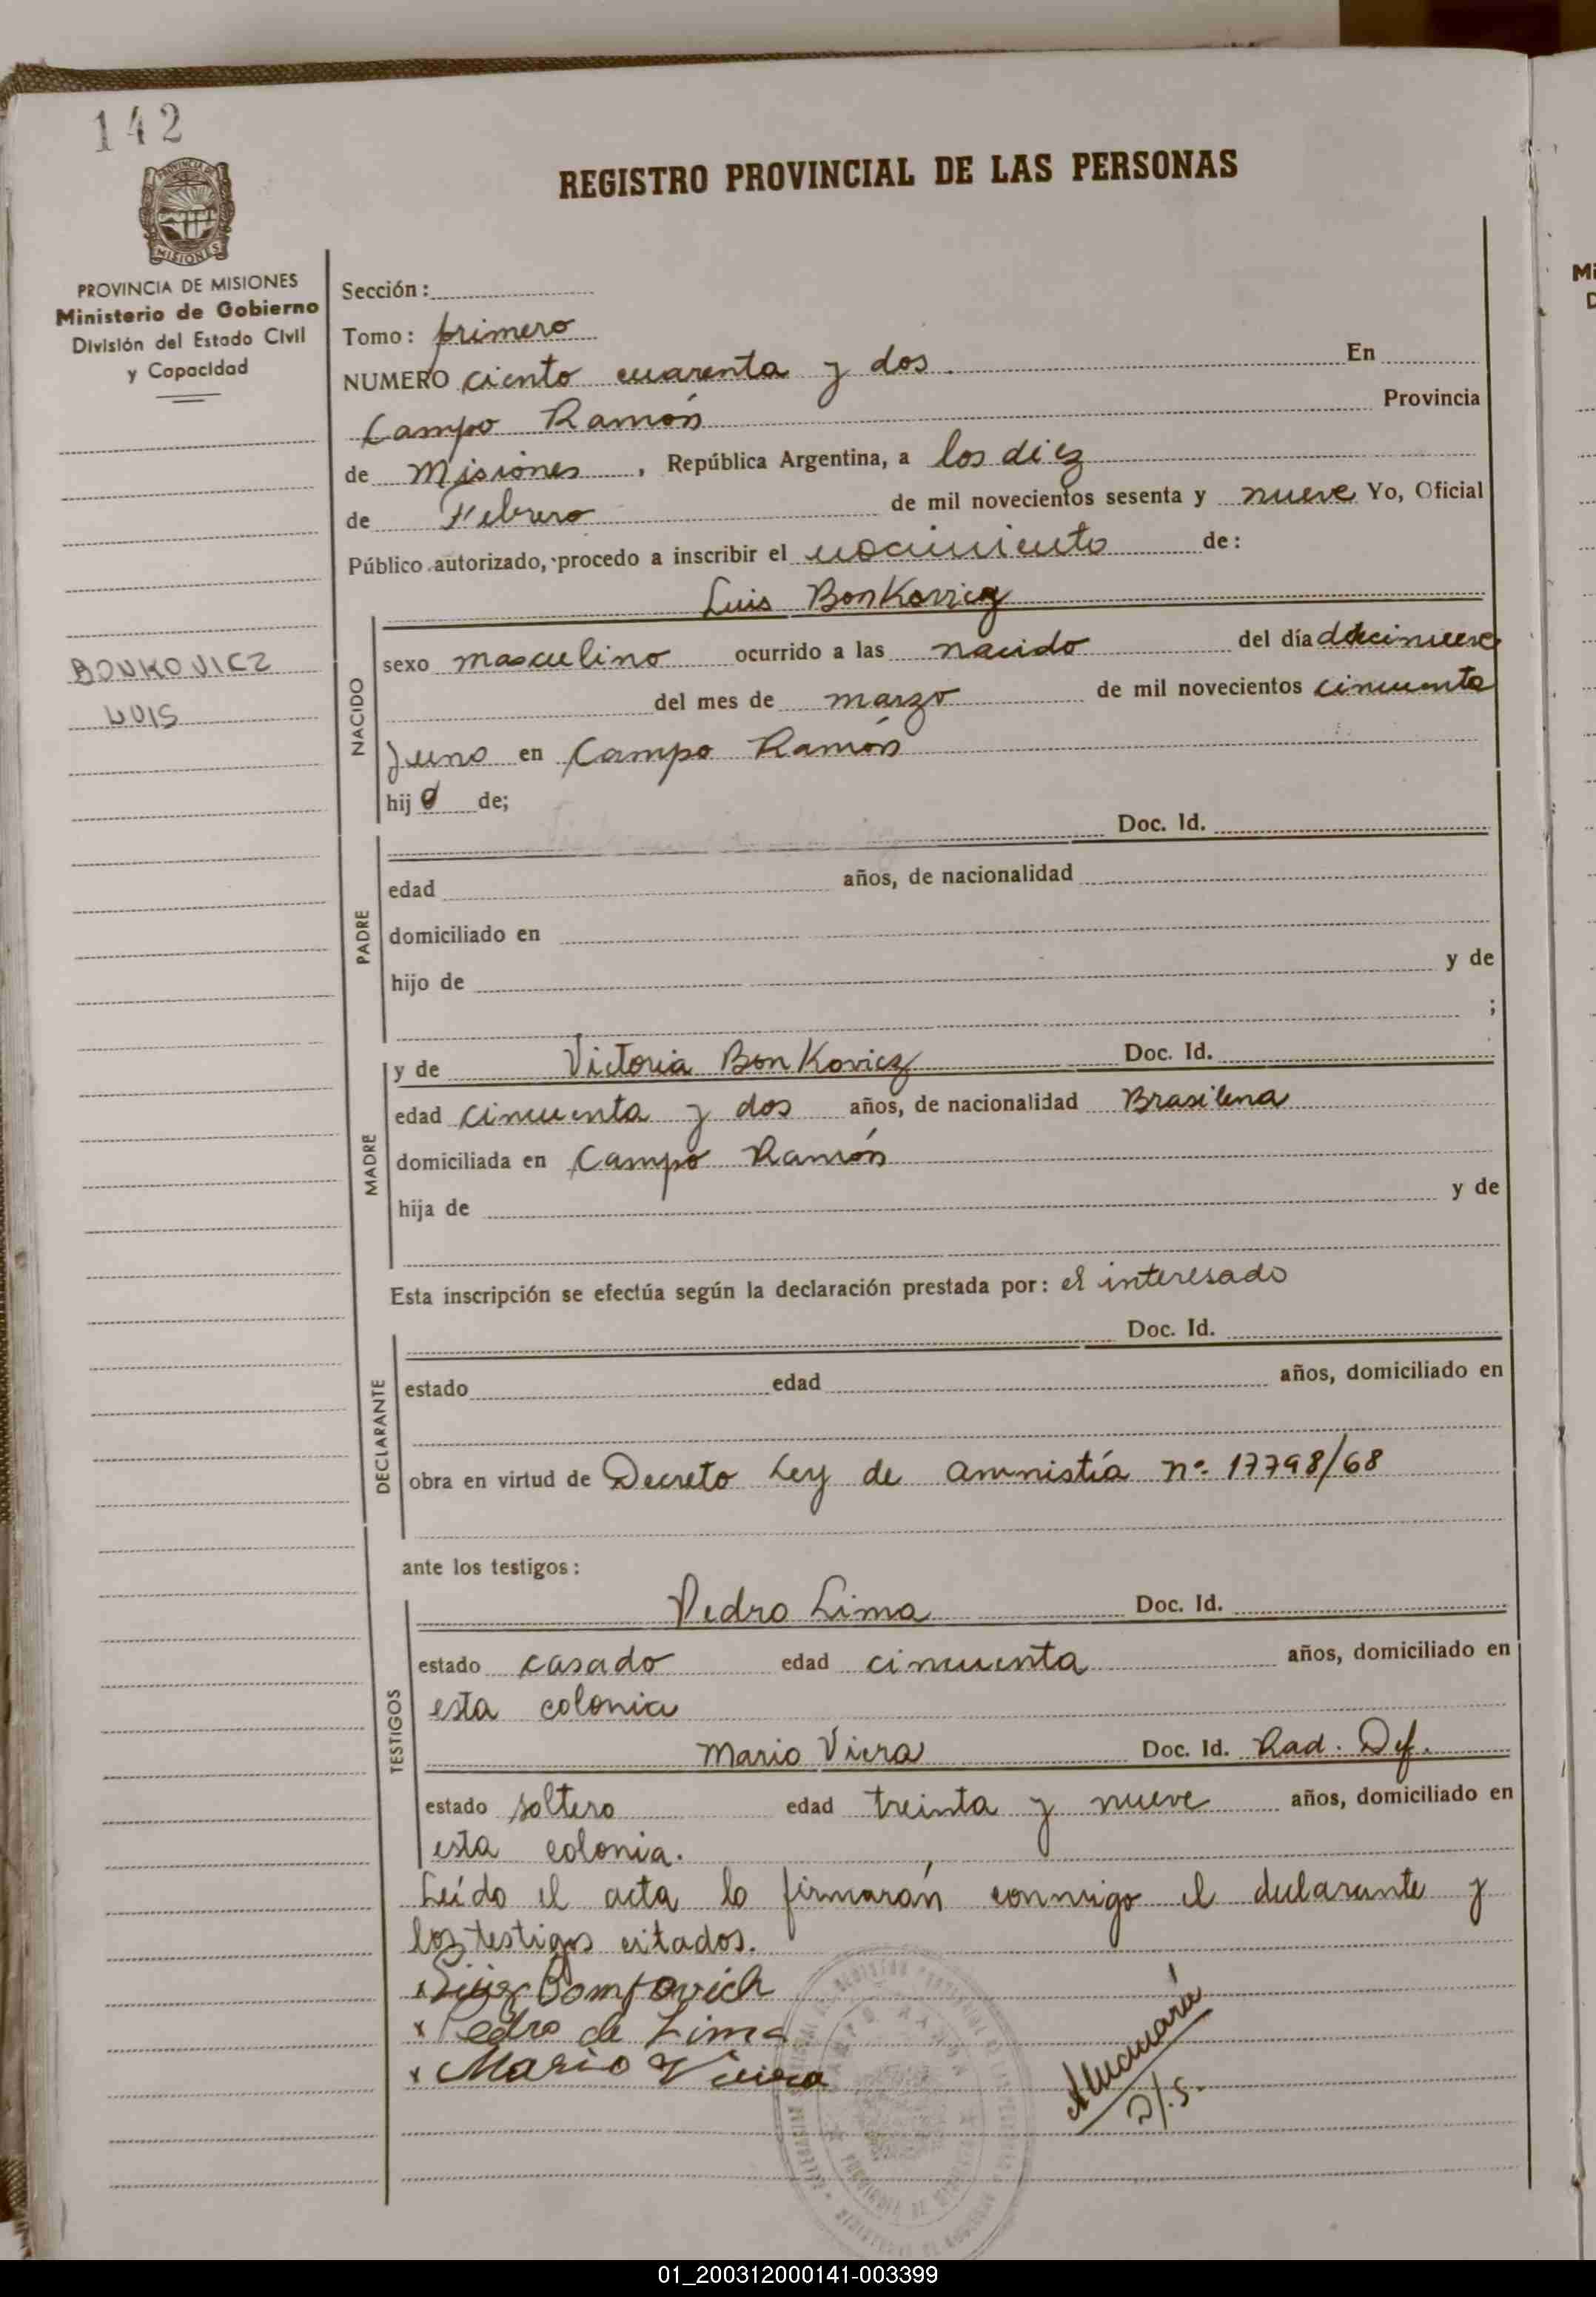 142
REGISTRO PROVINCIAL DE LAS PERSONAS
PROVINCIA DE MISIONES
Ministerio de Gobierno
División del Estado Civil
y Capacidad
BONKOVICZ
LUIS
Sección:
Tomo: primero
NUMERO ciento cuarenta y dos. En
Campo Ramón Provincia
de Misiones, República Argentina, a los diez
de Febrero de mil novecientos sesenta y nueve Yo, Oficial
Público autorizado, procedo a inscribir el nacimiento de:
Luis Bonkovicz
NACIDO
sexo masculino ocurrido a las nacido del día diecinueve
del mes de marzo de mil novecientos cincuenta
y uno en Campo Ramón
hijo de;
Doc. Id.
PADRE
edad años, de nacionalidad
domiciliado en
hijo de y de
;
MADRE
y de Victoria BonKovicz Doc. Id.
edad cincuenta y dos años, de nacionalidad Brasilena
domiciliada en Campo Ramón
hija de y de
Esta inscripción se efectúa según la declaración prestada por: el interesado
Doc. Id.
DECLARANTE
estado edad años, domiciliado en
obra en virtud de Decreto Ley de amnistía nº 17798/68
ante los testigos:
TESTIGOS
Pedro Lima Doc. Id.
estado casado edad cincuenta años, domiciliado en
esta colonia
Mario Viera Doc. Id. Rad. Def.
estado soltero edad treinta y nueve años, domiciliado en
esta colonia.
Leído el acta lo firmarán conmigo el declarante y
los testigos citados.
x Pedro de Lima
x Mario Vieira
01_200312000141-003399